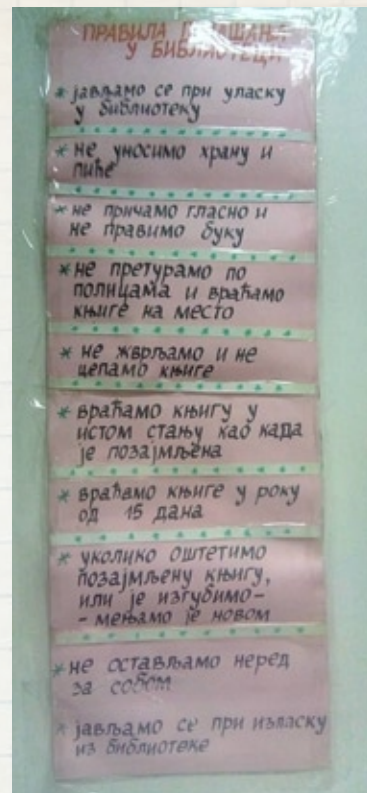 ПРАВИЛА ПОНАШАЊА
У БИБЛИОТЕЦИ
* јављамо се при уласку
у библиотеку
* не уносимо храну и
пиће
* не причамо гласно и
не правимо буку
* не претурамо по
полицама и враћамо
књиге на место
* не жврљамо и не
цепамо књиге
* враћамо књигу у
истом стању као када
је позајмљена
* враћамо књиге у року
од 15 дана
* уколико оштетимо
позајмљену књигу,
или је изгубимо-
- мењамо је новом
* не остављамо неред
за собом
* јављамо се при изласку
из библиотеке